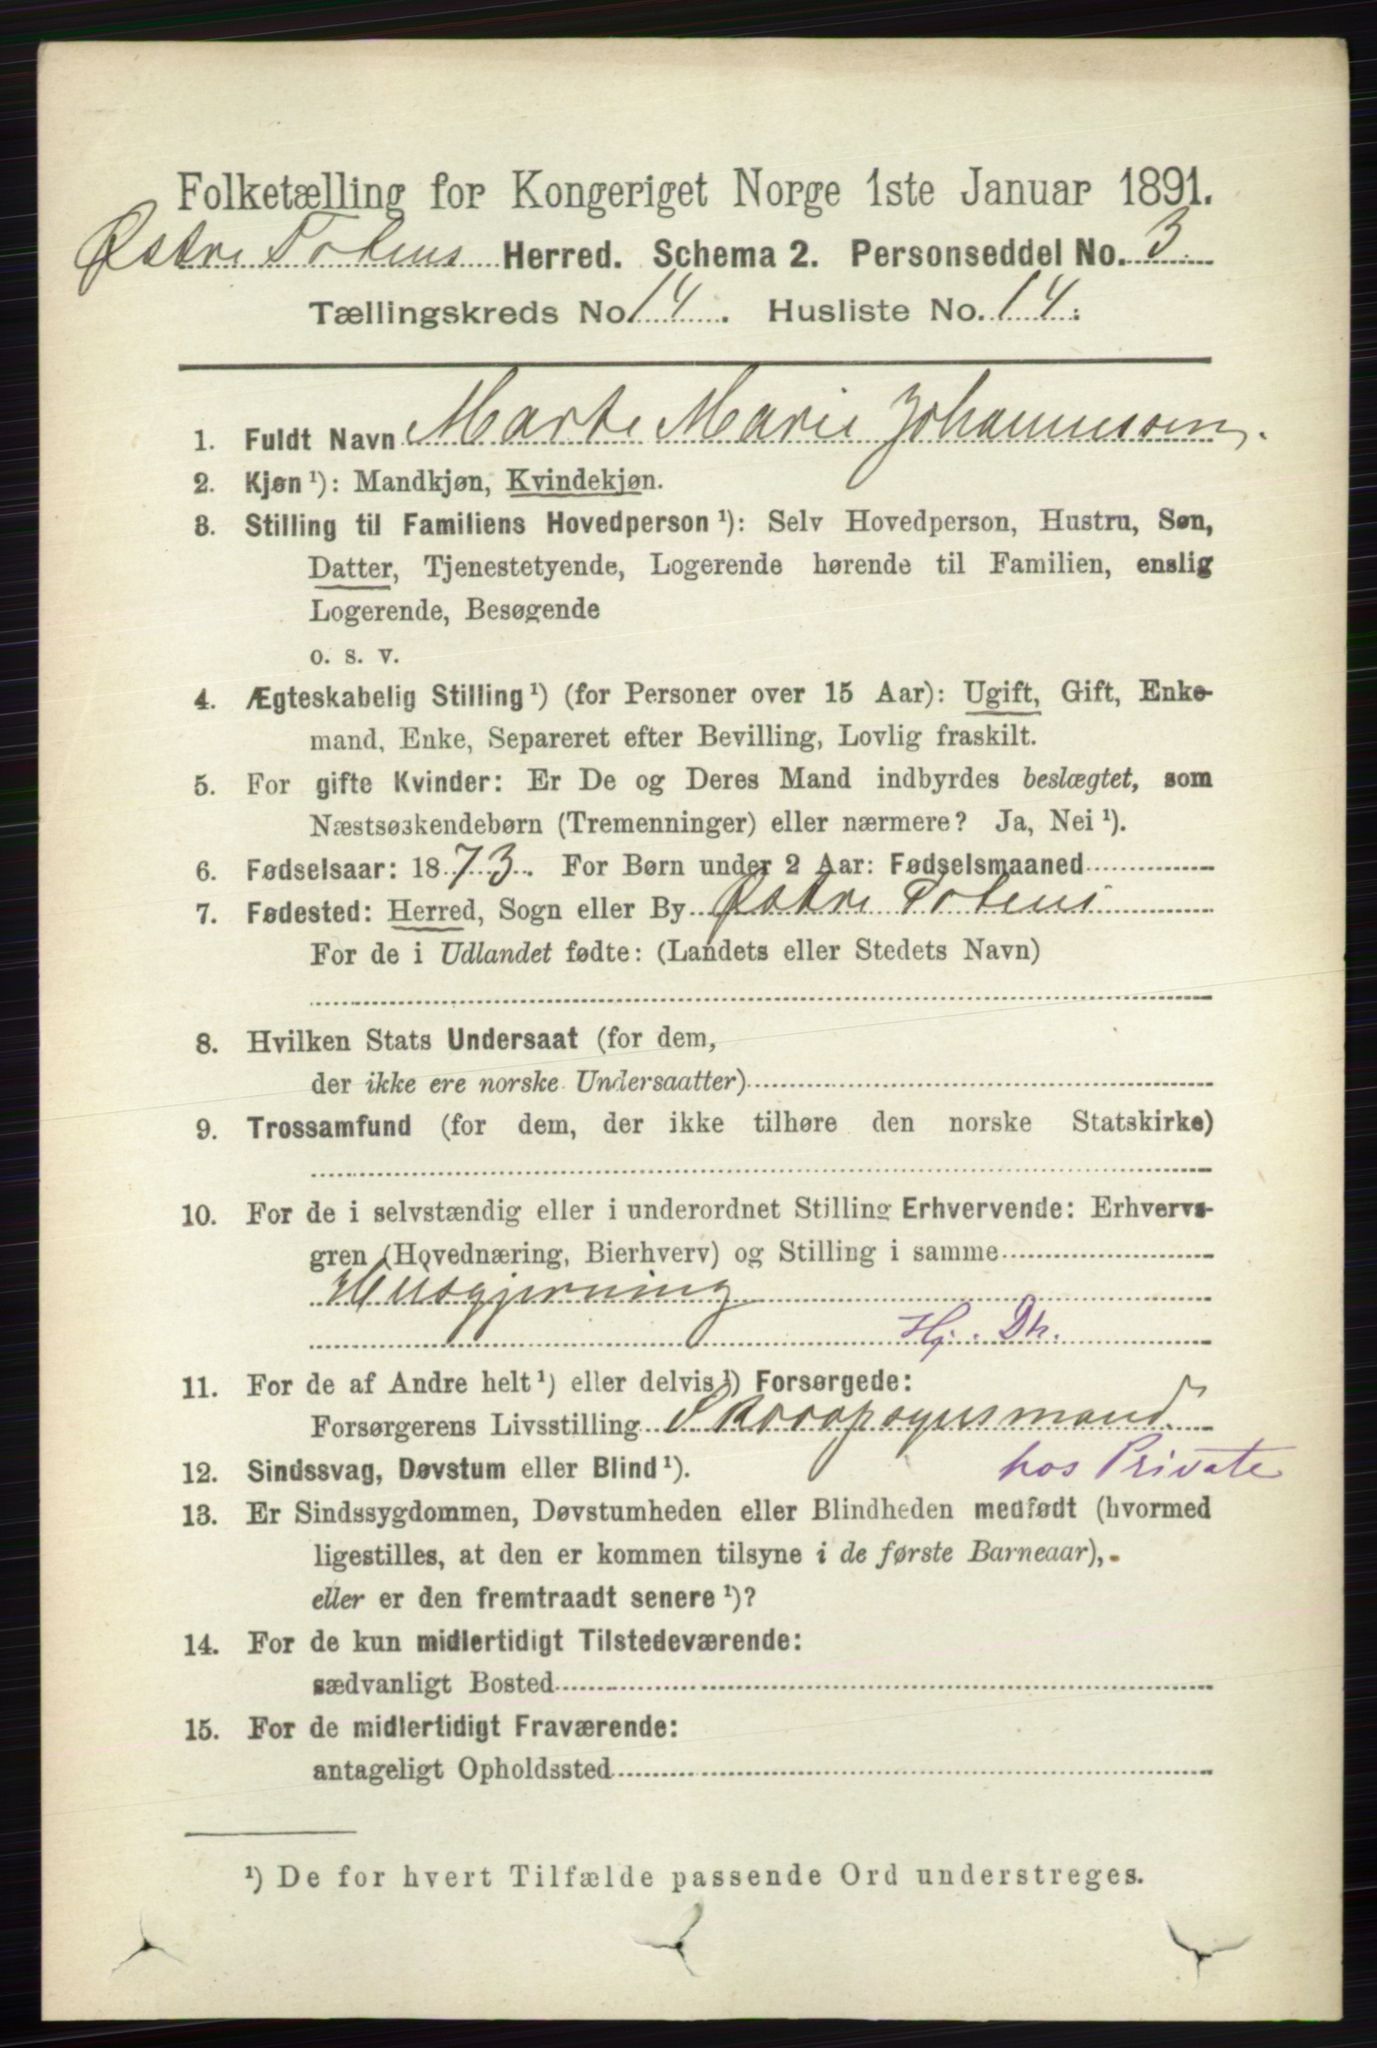 Folketælling for Kongeriget Norge 1ste Januar 1891.
Østre Totens Herred. Schema 2. Personseddel No. 3
Tællingskreds No. 14. Husliste No. 14.
1. Fuldt Navn Marte Marie Johannesen.
2. Kjøn ¹): Mandkjøn, Kvindekjøn.
3. Stilling til Familiens Hovedperson ¹): Selv Hovedperson, Hustru, Søn,
Datter, Tjenestetyende, Logerende hørende til Familien, enslig
Logerende, Besøgende
o. s. v.
4. Ægteskabelig Stilling ¹) (for Personer over 15 Aar): Ugift, Gift, Enke-
mand, Enke, Separeret efter Bevilling, Lovlig fraskilt.
5. For gifte Kvinder: Er De og Deres Mand indbyrdes beslægtet, som
Næstsøskendebørn (Tremenninger) eller nærmere? Ja, Nei ¹).
6. Fødselsaar: 1873. For Børn under 2 Aar: Fødselsmaaned
7. Fødested: Herred, Sogn eller By Østre Totens
For de i Udlandet fødte: (Landets eller Stedets Navn)
8. Hvilken Stats Undersaat (for dem,
der ikke ere norske Undersaatter)
9. Trossamfund (for dem, der ikke tilhøre den norske Statskirke)
10. For de i selvstændig eller i underordnet Stilling Erhvervende: Erhvervs-
gren (Hovednæring, Bierhverv) og Stilling i samme
Husgjerning
Hj. Dtr.
11. For de af Andre helt ¹) eller delvis ¹) Forsørgede:
Forsørgerens Livsstilling
hos Private
12. Sindssvag, Døvstum eller Blind ¹).
13. Er Sindssygdommen, Døvstumheden eller Blindheden medfødt (hvormed
ligestilles, at den er kommen tilsyne i de første Barneaar),
eller er den fremtraadt senere ¹)?
14. For de kun midlertidigt Tilstedeværende:
sædvanligt Bosted
15. For de midlertidigt Fraværende:
antageligt Opholdssted
¹) De for hvert Tilfælde passende Ord understreges.